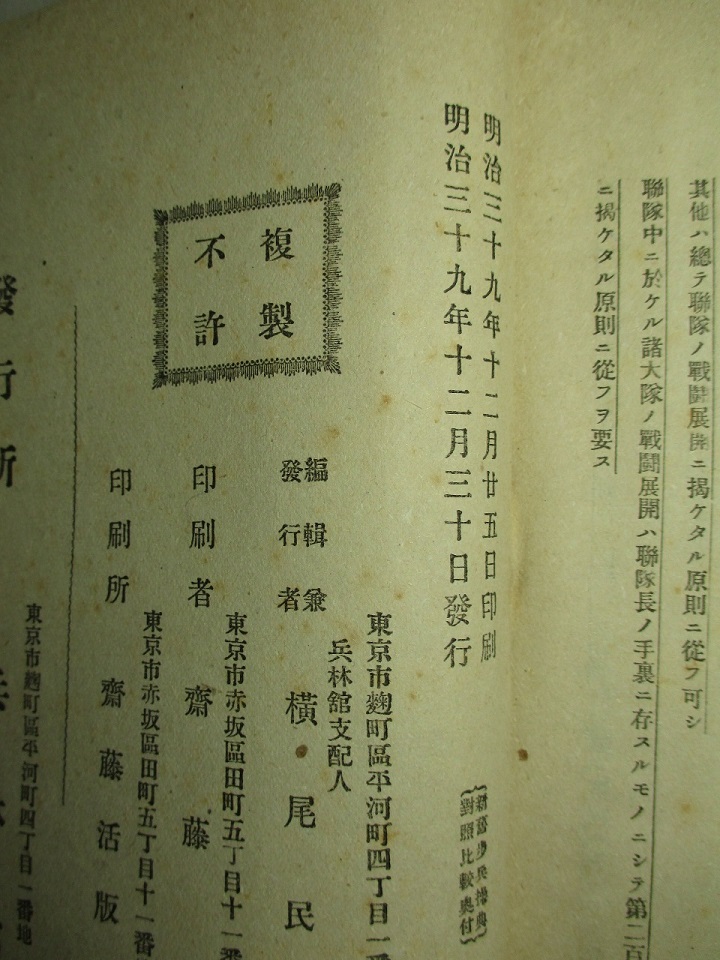 其他ハ總テ聯隊ノ戰鬪展開ニ揭ケタル原則ニ從フ可シ
聯隊中ニ於ケル諸大隊ノ戰鬪展開ハ聯隊長ノ手裏ニ存スルモノニシテ第二百
ニ揭ケタル原則ニ從フヲ要ス
明治三十九年十二月廿五日印刷
明治三十九年十二月三十日發行
新舊步兵操典
對照比較奧付
複製
不許
東京市麴町區平河町四丁目一番
兵林舘支配人
編輯兼
發行者
橫尾民
東京市赤坂區田町五丁目十一番
印刷者 齋藤
東京市赤坂區田町五丁目十一番
印刷所 齋藤活版
東京市麴町區平河町四丁目一番地
發行所 兵